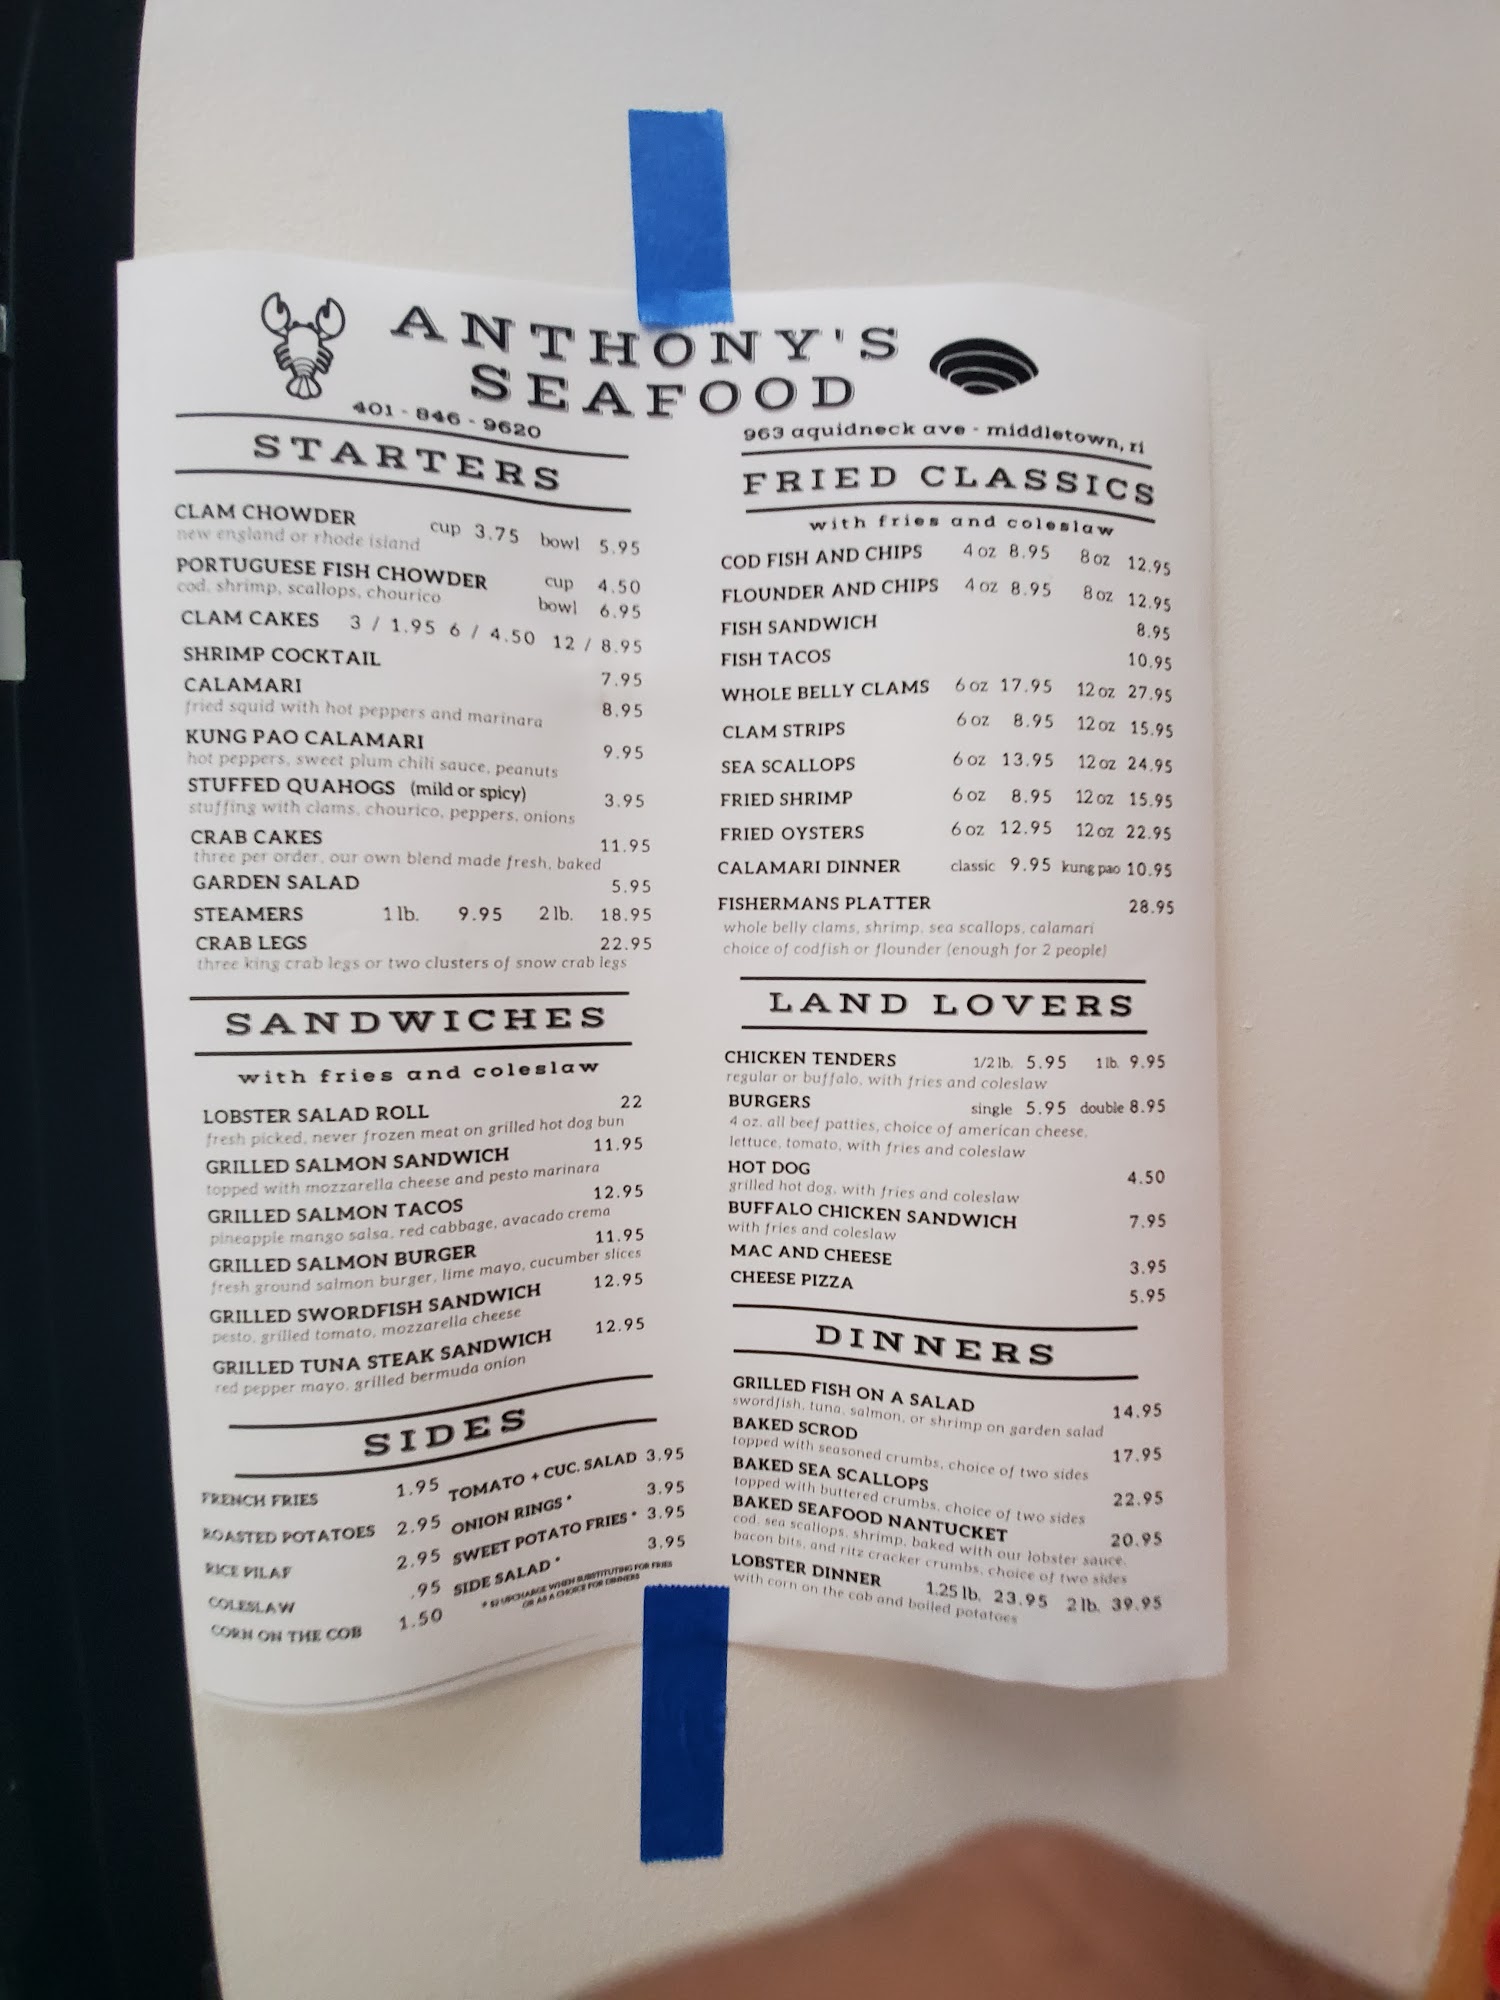 ANTHONY'S
SEAFOOD
401 - 846 - 9620
963 aquidneck ave - middletown, ri
STARTERS
CLAM CHOWDER cup 3.75 bowl 5.95
new england or rhode island
PORTUGUESE FISH CHOWDER cup 4.50
cod, shrimp, scallops, chourico bowl 6.95
CLAM CAKES 3 / 1.95 6 / 4.50 12 / 8.95
SHRIMP COCKTAIL 7.95
CALAMARI 8.95
fried squid with hot peppers and marinara
KUNG PAO CALAMARI 9.95
hot peppers, sweet plum chili sauce, peanuts
STUFFED QUAHOGS (mild or spicy) 3.95
stuffing with clams, chourico, peppers, onions
CRAB CAKES 11.95
three per order, our own blend made fresh, baked
GARDEN SALAD 5.95
STEAMERS 1 lb. 9.95 2 lb. 18.95
CRAB LEGS 22.95
three king crab legs or two clusters of snow crab legs
SANDWICHES
with fries and coleslaw
LOBSTER SALAD ROLL 22
fresh picked, never frozen meat on grilled hot dog bun
GRILLED SALMON SANDWICH 11.95
topped with mozzarella cheese and pesto marinara
GRILLED SALMON TACOS 12.95
pineapple mango salsa, red cabbage, avacado crema
GRILLED SALMON BURGER 11.95
fresh ground salmon burger, lime mayo, cucumber slices
GRILLED SWORDFISH SANDWICH 12.95
pesto, grilled tomato, mozzarella cheese
GRILLED TUNA STEAK SANDWICH 12.95
red pepper mayo, grilled bermuda onion
SIDES
FRENCH FRIES 1.95 TOMATO + CUC. SALAD 3.95
ROASTED POTATOES 2.95 ONION RINGS * 3.95
RICE PILAF 2.95 SWEET POTATO FRIES * 3.95
COLESLAW .95 SIDE SALAD * 3.95
CORN ON THE COB 1.50
* $2 UPCHARGE WHEN SUBSTITUTING FOR FRIES
OR AS A CHOICE FOR DINNERS
FRIED CLASSICS
with fries and coleslaw
COD FISH AND CHIPS 4 oz 8.95 8 oz 12.95
FLOUNDER AND CHIPS 4 oz 8.95 8 oz 12.95
FISH SANDWICH 8.95
FISH TACOS 10.95
WHOLE BELLY CLAMS 6 oz 17.95 12 oz 27.95
CLAM STRIPS 6 oz 8.95 12 oz 15.95
SEA SCALLOPS 6 oz 13.95 12 oz 24.95
FRIED SHRIMP 6 oz 8.95 12 oz 15.95
FRIED OYSTERS 6 oz 12.95 12 oz 22.95
CALAMARI DINNER classic 9.95 kung pao 10.95
FISHERMANS PLATTER 28.95
whole belly clams, shrimp, sea scallops, calamari
choice of codfish or flounder (enough for 2 people)
LAND LOVERS
CHICKEN TENDERS 1/2 lb. 5.95 1 lb. 9.95
regular or buffalo, with fries and coleslaw
BURGERS single 5.95 double 8.95
4 oz. all beef patties, choice of american cheese,
lettuce, tomato, with fries and coleslaw
HOT DOG 4.50
grilled hot dog, with fries and coleslaw
BUFFALO CHICKEN SANDWICH 7.95
with fries and coleslaw
MAC AND CHEESE 3.95
CHEESE PIZZA 5.95
DINNERS
GRILLED FISH ON A SALAD 14.95
swordfish, tuna, salmon, or shrimp on garden salad
BAKED SCROD 17.95
topped with seasoned crumbs, choice of two sides
BAKED SEA SCALLOPS 22.95
topped with buttered crumbs, choice of two sides
BAKED SEAFOOD NANTUCKET 20.95
cod, sea scallops, shrimp, baked with our lobster sauce,
bacon bits, and ritz cracker crumbs, choice of two sides
LOBSTER DINNER 1.25 lb. 23.95 2 lb. 39.95
with corn on the cob and boiled potatoes